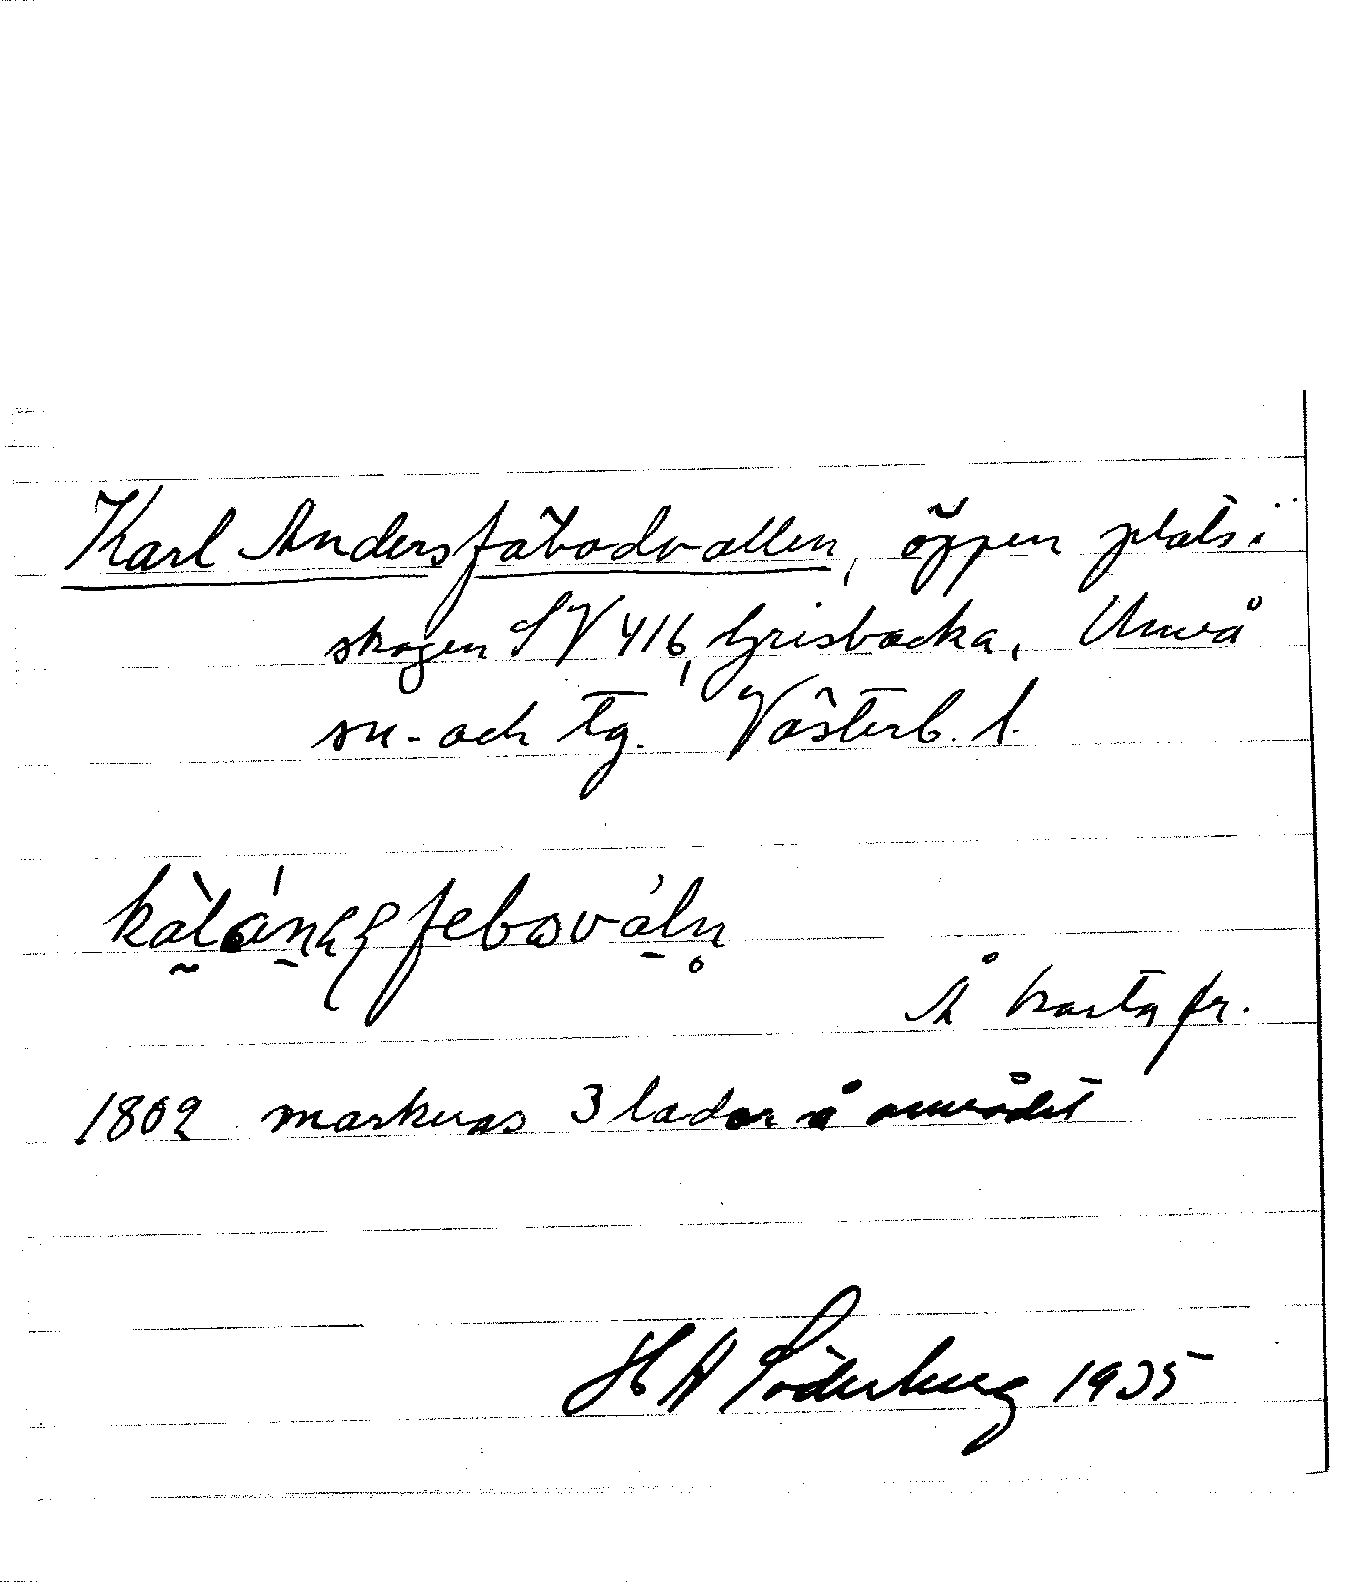 Karl Andersfäbodvallen, öppen plats i
skogen SV 416, Grisbacka, Umeå
sn. och tg. Västerb. l.
Å karta fr.
1802 markeras 3 lador å området
H A Söderberg 1935